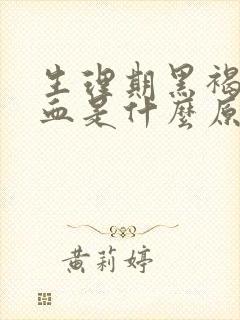 生理期黑褐
血是什麼原
黃莉婷